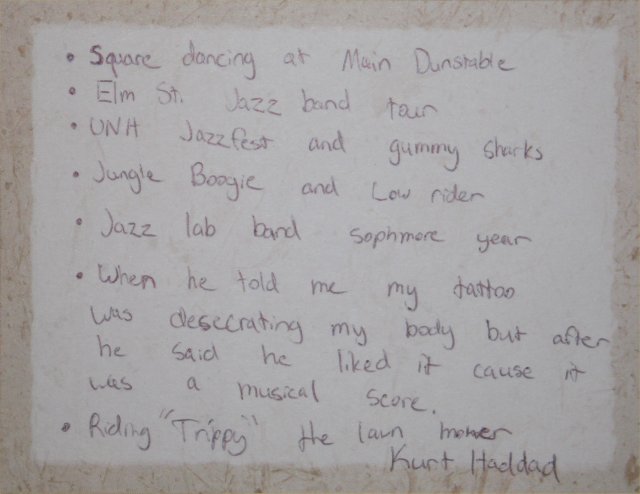 • Square dancing at Main Dunstable
• Elm St. Jazz band tour
• UNH Jazzfest and gummy sharks
• Jungle Boogie and Low rider
• Jazz lab band sophmore year
• When he told me my tattoo
was desecrating my body but after
he said he liked it cause it
was a musical score.
• Riding "Trippy" the lawn mower
Kurt Haddad